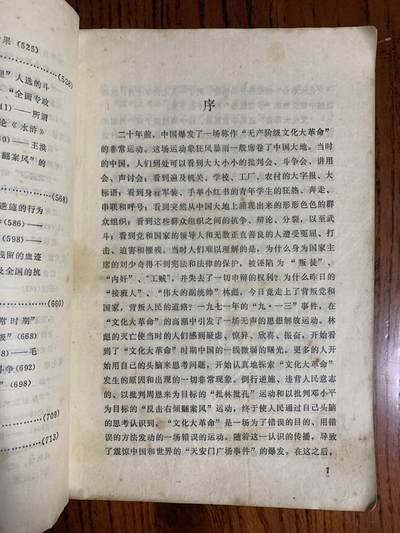 果 (525)
(528)
”人选的斗
“全面专政
41) ——所谓
论《水浒》
) ——王洪
翻案风”的
(568)
逆施的行为
(586) ——
(598) ——
残留的血迹
处全国的抗
(660)
常时期”
) ——毛
斗争 (692)
” (698)
(709)
(713)
序
二十年前，中国爆发了一场称作“无产阶级文化大革命”
的非常运动。这场运动象狂风暴雨一般席卷了中国大地。当时
的中国，人们到处可以看到大大小小的批判会、斗争会、讲用
会、声讨会；看到遍及机关、学校、工厂、农村的大字报、大
标语；看到身着军装、手擎小红书的青年学生的狂热、奔走、
串联和呼号；看到突然从中国大地上涌现出来的形形色色的群
众组织；看到这些群众组织之间的抗争、辩论、分裂，以至武
斗；看到党和国家的领导人和无数正直善良的人遭受驱逼、打
击、迫害和摧残。当时人们难以理解的是，为什么身为国家主
席的刘少奇得不到宪法和法律的保护，被诬陷为“叛徒”、
“内奸”、“工贼”，并失去了一切申辩的权利？为什么昨日的
“接班人”、“伟大的副统帅”林彪，今日竟走上了背叛党和国
家，背叛人民的道路？一九七一年的“九·一三”事件，在
“文化大革命”的高潮中引发了一场无声的思想解放运动。林
彪的灭亡使当时的人们感到疑虑、惊异、欣喜、振奋，开始看
到了“文化大革命”时期中国的一线微弱的曙光。更多的人开
始用自己的头脑来思考问题，开始认真地探索“文化大革命”
发生的原因和出现的一切非常现象。倒行逆施、违背人民意志
的、以批判周恩来为目标的“批林批孔”运动和以批判邓小平
为目标的“反击右倾翻案风”运动，终于使人民通过自己头脑
的思考认识到，“文化大革命”是一场为了错误的目的、用错
误的方法发动的一场错误的运动。随着这一认识的传播，导致
了震惊中国和世界的“天安门广场事件”的爆发。在这之后，
1